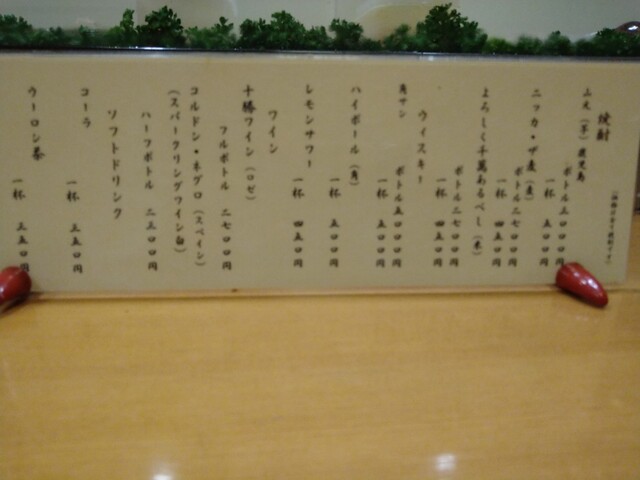 焼酎
山元(芋)鹿児島
ボトル三〇〇〇円
一杯 五〇〇円
ニッカ・ザ麦(麦)
ボトル二七〇〇円
一杯 四五〇円
よろしく千萬あるべし(米)
ボトル二七〇〇円
一杯 四五〇円
ウィスキー
角サン ボトル五〇〇〇円
一杯 四五〇円
ハイボール(角)
一杯 五五〇円
レモンサワー
一杯 四五〇円
ワイン
十勝ワイン(ロゼ)
フルボトル 二七〇〇円
コルドン・ネグロ(スペイン)
(スパークリングワイン白)
ハーフボトル 二三〇〇円
ソフトドリンク
コーラ
一杯 三五〇円
ウーロン茶
一杯 三五〇円